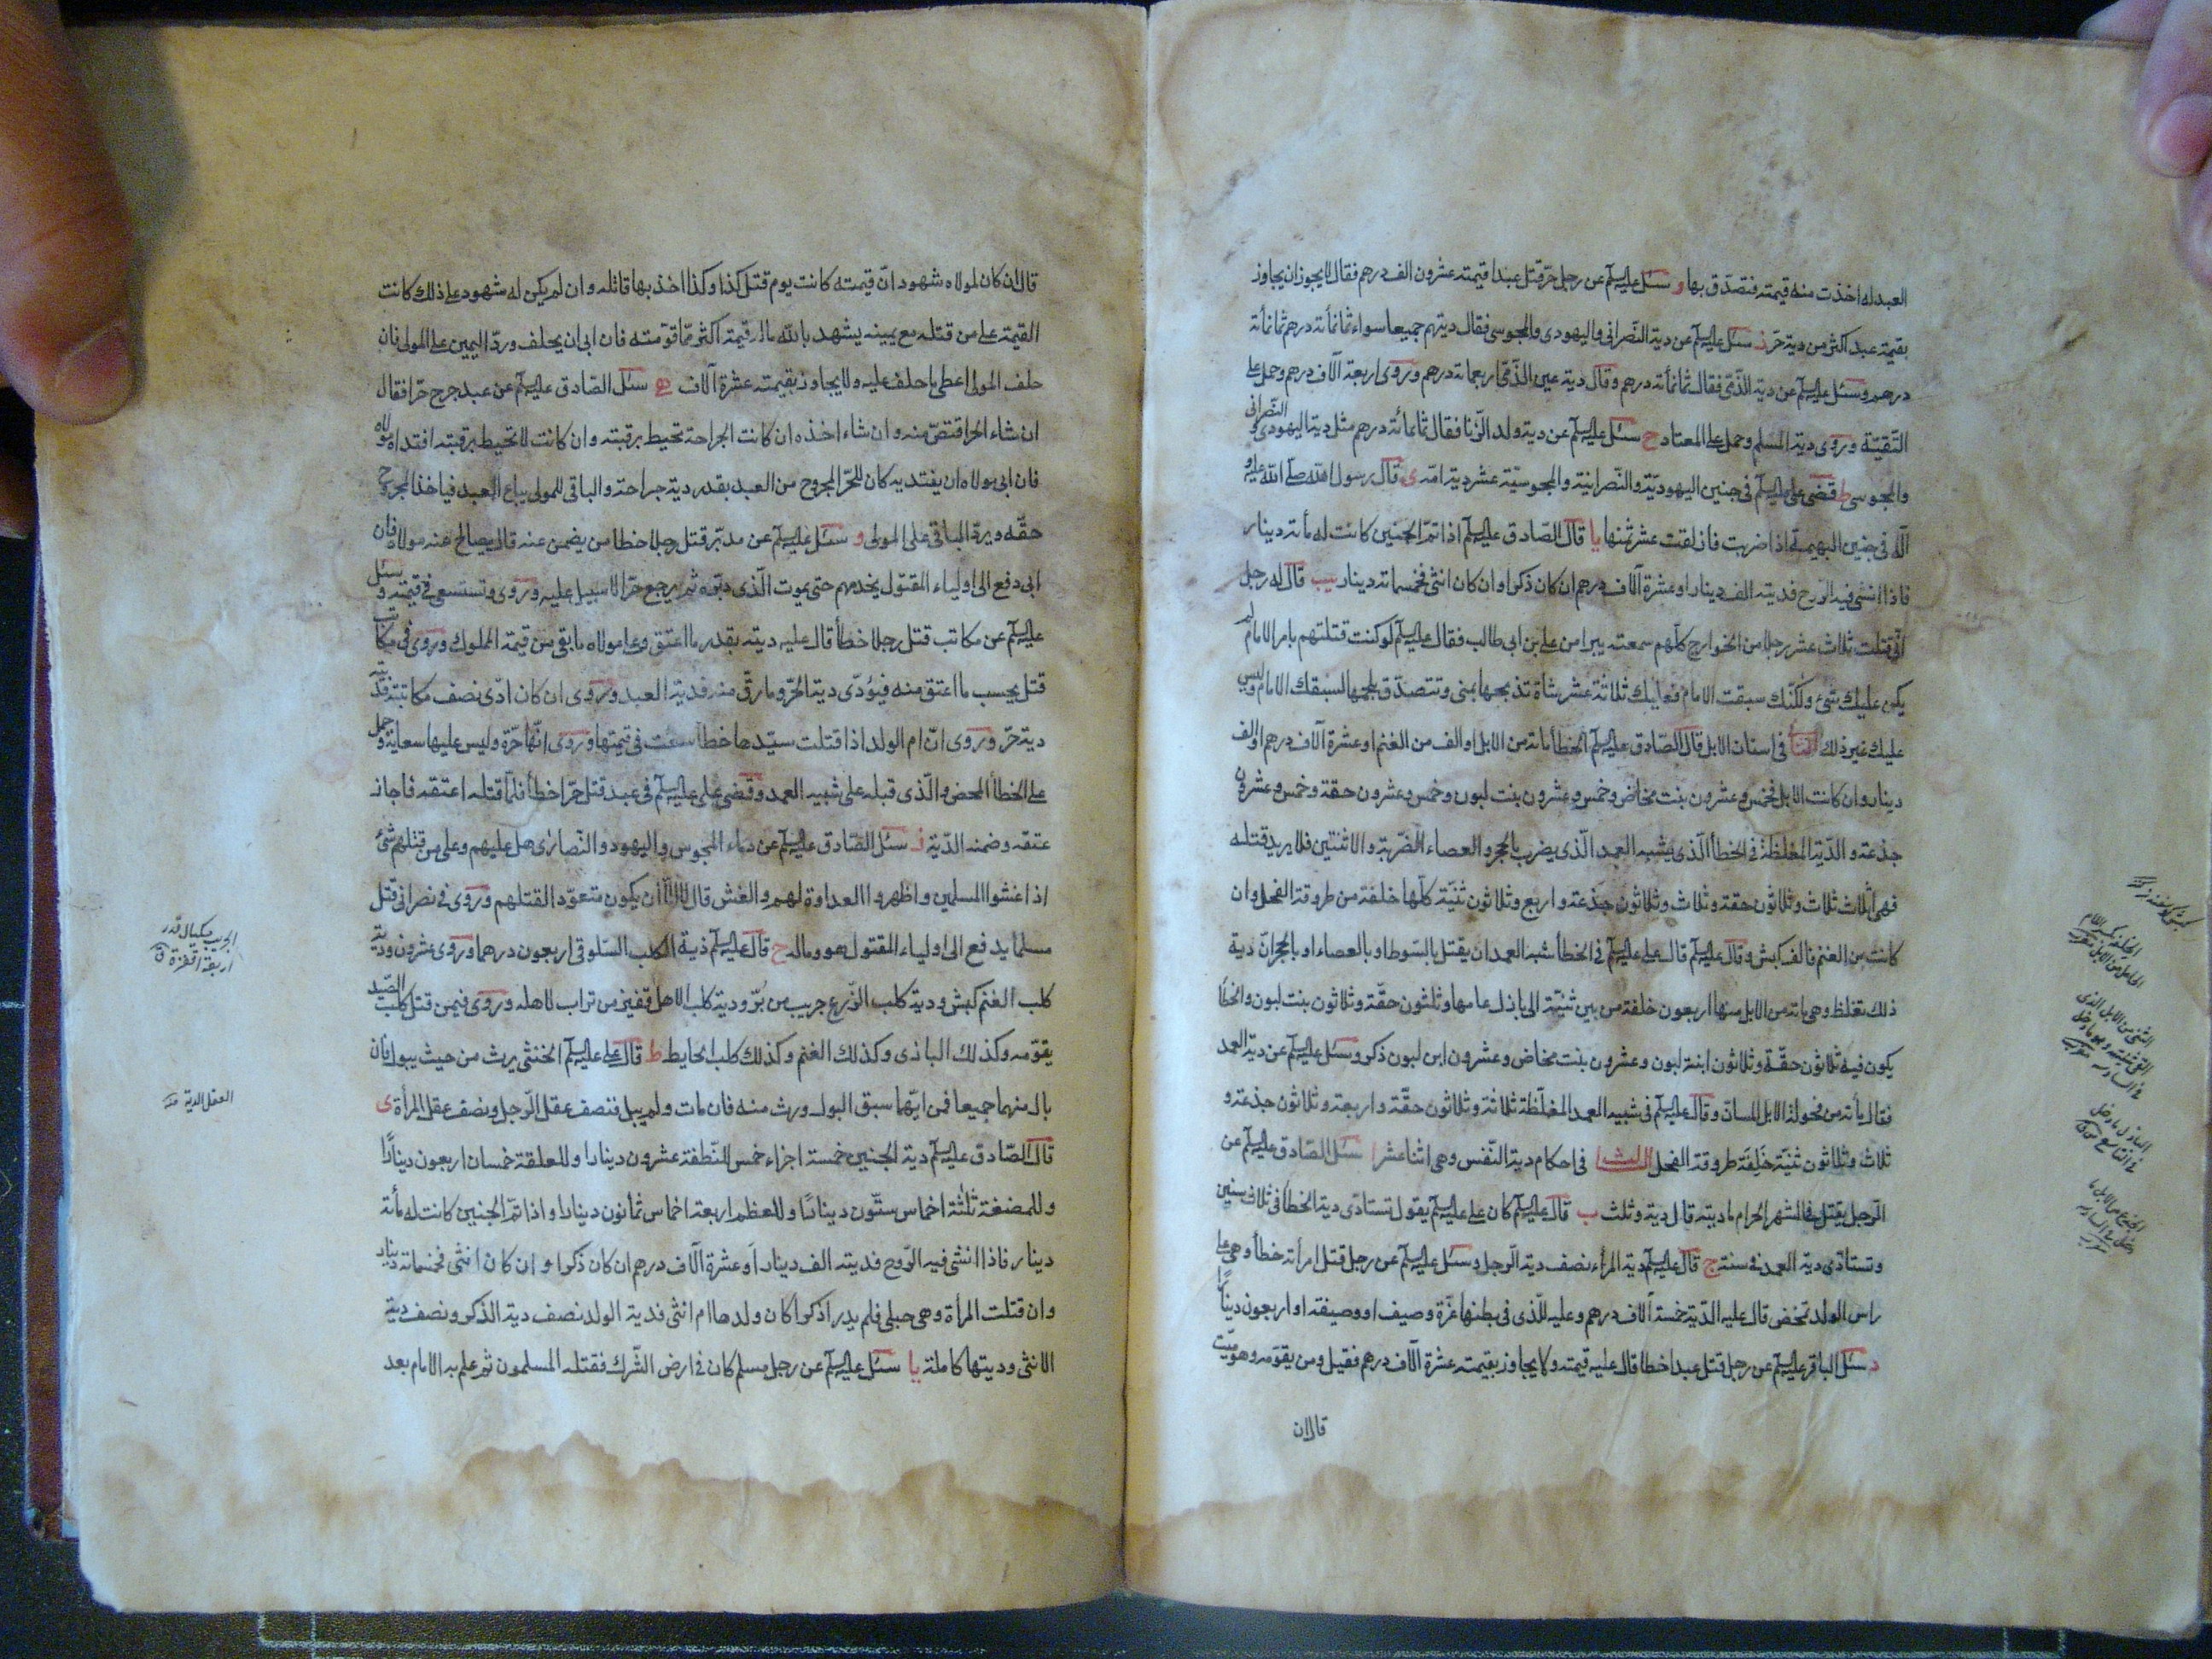 العبد له اخذت منه قيمته فتصدّق بها و سئل عليه السلم عن رجل حرّ قتل عبدا قيمته عشرون الف درهم فقال لا يجوز ان يجاوز
بقيمة عبد اكثر من دية حرّ ز سئل عليه السلم عن دية النّصرانى واليهودى والمجوسى فقال ديتهم جميعا سواء ثمانمأته درهم ثمانمأته
درهم وسئل عليه السلم عن دية الذّمى فقال ثمانمأته درهم وقال دية عين الذّمّى اربعمائة درهم وروى اربعة آلاف درهم وحمل على
التّقيّة وروى دية المسلم وحمل على المعتاد ح سئل عليه السلم عن دية ولد الزّنا فقال ثمانمائة درهم مثل دية اليهودى والنّصرانى
والمجوسى ط قضى على عليه السلم فى جنين اليهوديّة والنّصرانيّة والمجوسيّة عشر دية امّه ى قال رسول الله صلّى الله عليه و
آله فى جنين البهيمة اذا ضربت فازلقت عشر ثمنها يا قال الصّادق عليه السلم اذا تمّ الجنين كانت له مأته دينار
فاذا انشى فيه الرّوح فديته الف دينار او عشرة آلاف درهم ان كان ذكرا وان كان انثى فخمسمائة دينار يب قال له رجل
انّى قتلت ثلاث عشر رجلا من الخوارج كلّهم سمعته يبرا من على بن ابى طالب فقال عليه السلم لو كنت قتلتهم بامر الامام لم
يكن عليك شئ ولكنّك سبقت الامام فعليك ثلاثة عشر شاة تذبحها بمنى وتتصدّق بلحمها لسبقك الامام وليس
عليك غير ذلك فى اسنان الابل قال الصّادق عليه السلم الخطأ مائة من الابل او الف من الغنم او عشرة آلاف درهم او الف
دينار وان كانت الابل فخمس وعشرون بنت مخاض وخمس وعشرون بنت لبون وخمس وعشرون حقة وخمس وعشرون
جذعة والدّية المغلظة فى الخطأ الّذى يشبه العمد الّذى يضرب بالحجر والعصاء الضّربة والاثنتين فلا يريد قتله
فهى اثلاث ثلاث وثلاثون حقة وثلاث وثلاثون جذعة واربع وثلاثون ثنيّة كلّها خلفة من طروقة الفحل وان
كانت من الغنم فالف كبش وقال عليه السلم قال على عليه السلم فى الخطأ شبه العمد ان يقتل بالسّوط او بالعصاء او بالحجر انّ دية
ذلك تغلظ وهى مائة من الابل منها اربعون خلفة من بين ثنيّة الى باذل عامها وثلثون حقّة وثلاثون بنت لبون والخطأ
يكون فيه ثلاثون حقّة وثلاثون ابنة لبون وعشرون بنت مخاض وعشرون ابن لبون ذكر وسئل عليه السلم عن دية العمد
فقال مأته من فحولة الابل المسانّ وقال عليه السلم فى شبيه العمد المغلّظة ثلاثة وثلاثون حقّة واربعة وثلاثون جذعة و
ثلاث وثلاثون ثنيّة خلفة طروقة الفحل الثالث فى احكام دية النّفس وهى اثنا عشر ا سئل الصّادق عليه السلم عن
الرّجل يقتل فى الشهر الحرام ما ديته قال دية وثلث ب قال عليه السلم كان على عليه السلم يقول تستادى دية الخطأ فى ثلاث سنين
وتستادى دية العمد فى سنة ج قال عليه السلم دية المرأة نصف دية الرّجل وسئل عليه السلم عن رجل قتل امرأته خطأ وهى على
راس الولد تمخض قال عليه الدّية خمسة آلاف درهم وعليه للّذى فى بطنها غرّة وصيف او وصيفة او اربعون دينارا
د سئل الباقر عليه السلم عن رجل قتل عبدا خطأ قال عليه قيمته ولا يجاوز بقيمته عشرة آلاف درهم فقيل ومن يقوّمه وهو ميّت
قال ان
الخلفة بكسر اللام
الحامل من الابل
قال ان كان لمولاه شهود انّ قيمته كانت يوم قتل كذا وكذا اخذ بها قاتله وان لم يكن له شهود على ذلك كانت
القيمة على من قتله مع يمينه يشهد بالله ماله قيمة اكثر ممّا قوّمته فان ابى ان يحلف وردّ اليمين على المولى فان
حلف المولى اعطى ما حلف عليه ولا يجاوز بقيمته عشرة آلاف ه سئل الصّادق عليه السلم عن عبد جرح حرّا فقال
ان شاء الحرّ اقتصّ منه وان شاء اخذه ان كانت الجراحة تحيط برقبته وان كانت لا تحيط برقبته افتداه مولاه
فان ابى مولاه ان يفتديه كان للحرّ المجروح من العبد بقدر دية جراحته والباقى للمولى يباع العبد فياخذ المجروح
حقّه ويردّ الباقى على المولى و سئل عليه السلم عن مدبّر قتل رجلا خطأ من يضمن عنه قال يصالح عنه مولاه فان
ابى دفع الى اولياء المقتول يخدمهم حتى يموت الّذى دبّره ثم يرجع حرّا لا سبيل عليه وروى وتستسعى فى قيمته وسئل
عليه السلم عن مكاتب قتل رجلا خطأ قال عليه ديته بقدر ما اعتق وعلى مولاه ما بقى من قيمة المملوك وروى فى مكاتب
قتل يحسب ما اعتق منه فيؤدّى دية الحرّ وما رقّ منه فدية العبد وروى ان كان ادّى نصف مكاتبته فديته
دية حرّ وروى انّ ام الولد اذا قتلت سيّدها خطأ سعت فى قيمتها وروى انّها حرّة وليس عليها سعاية وحمل
على الخطأ المحض والّذى قبله على شبيه العمد وقضى على عليه السلم فى عبد قتل حرّا خطأ فلمّا قتله اعتقه فاجاز
عتقه وضمنه الدّية ز سئل الصّادق عليه السلم عن دماء المجوس واليهود والنّصارى هل عليهم وعلى من قتلهم شئ
اذا غشوا المسلمين واظهروا العداوة لهم والغش قال لا الّا ان يكون متعوّدا لقتلهم وروى فى نصرانى قتل
مسلما يدفع الى اولياء المقتول هو وماله ح قال عليه السلم دية الكلب السّلوقى اربعون درهما وروى عشرون ودية
كلب الغنم كبش ودية كلب الزّرع جريب من بُرّ ودية كلب الاهل قفيز من تراب لاهله وروى فيمن قتل كلب الصّيد
يقوّمه وكذلك البازى وكذلك الغنم وكذلك كلب الحايط ط قال على عليه السلم الخنثى يرث من حيث يبول فان
بال منهما جميعا فمن ايّهما سبق البول ورث منه فان مات ولم يبل فنصف عقل الرّجل ونصف عقل المرأة ى
قال الصّادق عليه السلم دية الجنين خمسة اجزاء خمس للنّطفة عشرون دينارا وللعلقة خمسان اربعون دينارًا
وللمضغة ثلثة اخماس ستّون دينارًا وللعظم اربعة اخماس ثمانون دينارا واذا تمّ الجنين كانت له مأته
دينار فاذا انشى فيه الرّوح فديته الف دينار او عشرة آلاف درهم ان كان ذكرا وان كان انثى فخمسمائة دينار
وان قتلت المرأة وهى حبلى فلم يدر اذكرا كان ولدها ام انثى فدية الولد نصف دية الذكر ونصف دية
الانثى وديتها كاملة يا سئل عليه السلم عن رجل مسلم كان فى ارض الشّرك فقتله المسلمون ثم علم به الامام بعد
الجريب مكيال قدر
اربعة اقفزة ق
العقل الدية